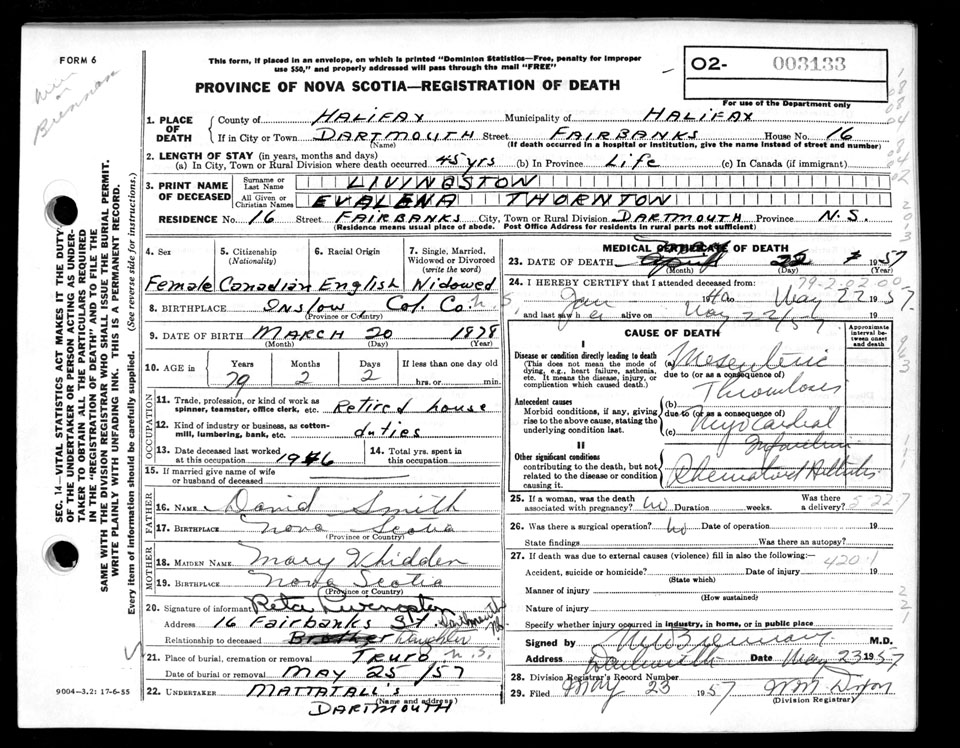 FORM 6
This form, if placed in an envelope, on which is printed "Dominion Statistics—Free, penalty for improper
use $50," and properly addressed will pass through the mail "FREE"
PROVINCE OF NOVA SCOTIA—REGISTRATION OF DEATH
O2- 003133
For use of the Department only
Brennan
SEC. 14—VITAL STATISTICS ACT MAKES IT THE DUTY
OF THE UNDERTAKER OR PERSON ACTING AS UNDER-
TAKER TO OBTAIN ALL THE PARTICULARS REQUIRED
IN THE "REGISTRATION OF DEATH" AND TO FILE THE
SAME WITH THE DIVISION REGISTRAR WHO SHALL ISSUE THE BURIAL PERMIT.
WRITE PLAINLY WITH UNFADING INK. THIS IS A PERMANENT RECORD.
Every item of information should be carefully supplied. (See reverse side for instructions.)
1. PLACE OF DEATH
County of HALIFAX Municipality of HALIFAX
If in City or Town DARTMOUTH Street FAIRBANKS House No. 16
(Name) (If death occurred in a hospital or institution, give the name instead of street and number)
2. LENGTH OF STAY (in years, months and days)
(a) In City, Town or Rural Division where death occurred 45 yrs (b) In Province Life (c) In Canada (if immigrant)
3. PRINT NAME OF DECEASED
Surname or Last Name LIVINGSTON
All Given or Christian Names EVALENA THORNTON
RESIDENCE No. 16 Street FAIRBANKS City, Town or Rural Division DARTMOUTH Province N.S.
(Residence means usual place of abode. Post Office Address for residents in rural parts not sufficient)
4. Sex
5. Citizenship (Nationality)
6. Racial Origin
7. Single, Married, Widowed or Divorced (write the word)
Female Canadian English Widowed
8. BIRTHPLACE Onslow Col. Co. N.S.
(Province or Country)
9. DATE OF BIRTH MARCH 20 1878
(Month) (Day) (Year)
10. AGE in Years Months Days If less than one day
79 2 2 hrs. or min.
OCCUPATION
11. Trade, profession, or kind of work as
spinner, teamster, office clerk, etc. Retired house
12. Kind of industry or business, as cotton-
mill, lumbering, bank, etc. duties
13. Date deceased last worked
at this occupation 1946
14. Total yrs. spent in
this occupation
15. If married give name of wife
or husband of deceased
FATHER
16. NAME David Smith
17. BIRTHPLACE Nova Scotia
(Province or Country)
MOTHER
18. MAIDEN NAME Mary Whidden
19. BIRTHPLACE Nova Scotia
(Province or Country)
20. Signature of informant Reta Livingston
Address 16 Fairbanks St. Dartmouth NS.
Relationship to deceased Brother Daughter
21. Place of burial, cremation or removal Truro N.S.
Date of burial or removal MAY 25/57
22. UNDERTAKER MATTATALL'S
(Name and address)
DARTMOUTH
9004—3.2: 17-6-55
MEDICAL CERTIFICATE OF DEATH
23. DATE OF DEATH 22 1957
(Month) (Day) (Year)
24. I HEREBY CERTIFY that I attended deceased from:
Jan 1940 to May 22 1957
and last saw her alive on May 22/57 19
CAUSE OF DEATH
Approximate interval between onset and death
I
Disease or condition directly leading to death
(This does not mean the mode of dying, e.g., heart failure, asthenia, etc. It means the disease, injury, or complication which caused death.)
(a) Mesenteric
due to (or as a consequence of)
Thrombosis
Antecedent causes
Morbid conditions, if any, giving rise to the above cause, stating the underlying condition last.
(b)
due to (or as a consequence of)
(c) Myocardial
Infarction
II
Other significant conditions
contributing to the death, but not related to the disease or condition causing it.
Rheumatoid Arthritis
25. If a woman, was the death
associated with pregnancy? No Duration weeks. Was there a delivery? 5-22-7
26. Was there a surgical operation? No Date of operation 19
State findings Was there an autopsy?
27. If death was due to external causes (violence) fill in also the following:—
420.1
Accident, suicide or homicide? Date of injury 19
(State which)
Manner of injury
(How sustained)
Nature of injury
Specify whether injury occurred in industry, in home, or in public place
Signed by Brennan M.D.
Address Dartmouth Date May 23 1957
28. Division Registrar's Record Number
29. Filed May 23 1957
(Division Registrar)